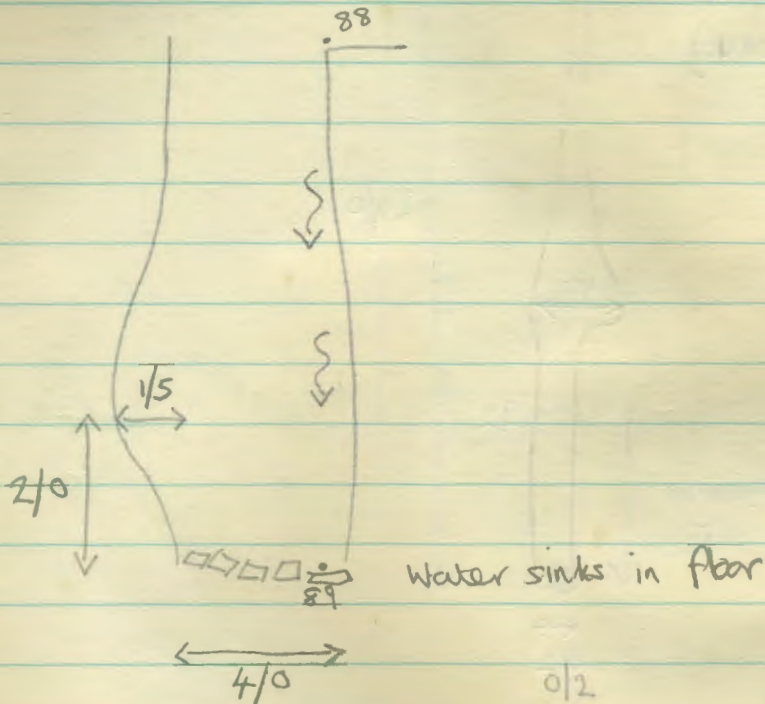 88
1/5
2/0
89
Water sinks in floor
4/0
0/2